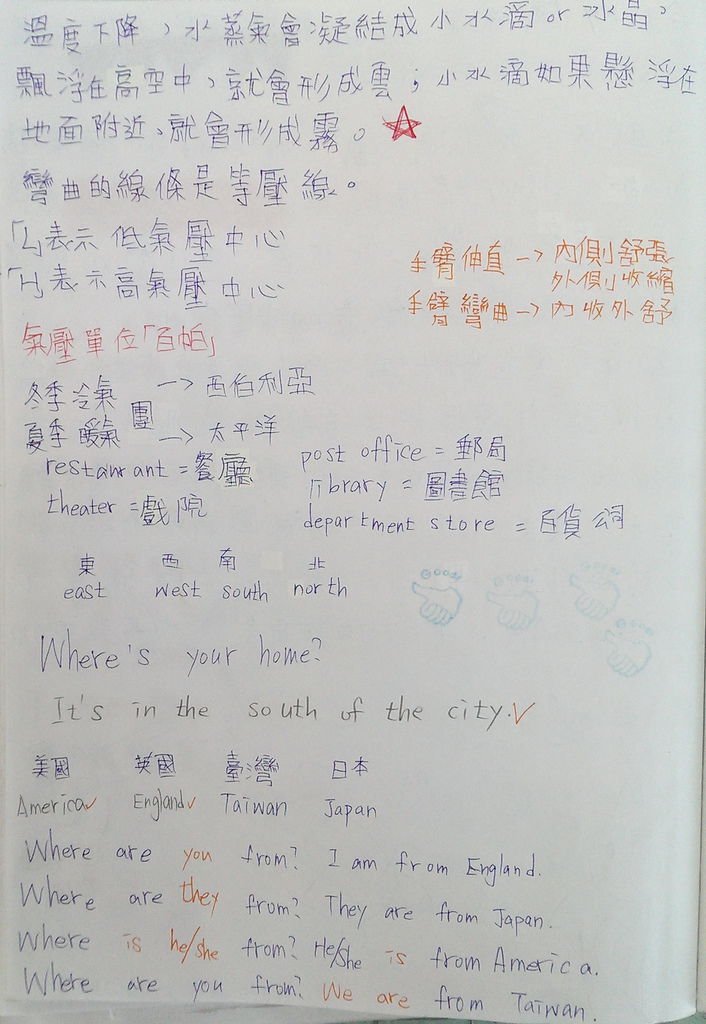 溫度下降，水蒸氣會凝結成小水滴or冰晶，
飄浮在高空中，就會形成雲；小水滴如果懸浮在
地面附近，就會形成霧。
彎曲的線條是等壓線。
「L」表示低氣壓中心
「H」表示高氣壓中心
手臂伸直→內側舒張
外側收縮
手臂彎曲→內收外舒
氣壓單位「百帕」
冬季冷氣團→西伯利亞
夏季暖氣團→太平洋
restaurant=餐廳
theater=戲院
post office=郵局
library=圖書館
department store=百貨公司
東 西 南 北
east west south north
Where's your home?
It's in the south of the city.
美國 英國 臺灣 日本
America England Taiwan Japan
Where are you from? I am from England.
Where are they from? They are from Japan.
Where is he/she from? He/She is from America.
Where are you from? We are from Taiwan.